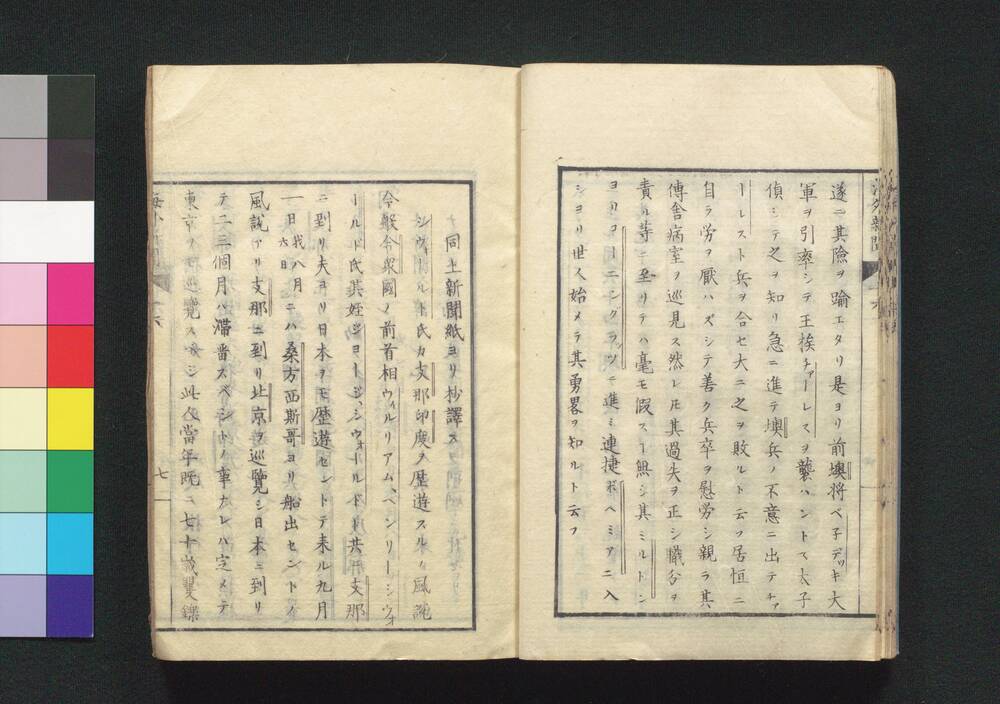 海外新聞
遂ニ其險ヲ踰エタリ是ヨリ前墺將ベ子デッキ大
軍ヲ引率シテ王族チァーレスヲ襲ハントス太子
偵ミテ之ヲ知リ急ニ進テ墺兵ノ不意ニ出テチァ
ーレスト兵ヲ合セ大ニ之ヲ敗ルト云フ居恒ニ
自ラ労ヲ厭ハズシテ善ク兵卒ヲ慰労シ親ラ其
傳舎病室ヲ巡見ス然レ𪜈其過失ヲ正シ職分ヲ
責ル等ニ至リテハ毫モ假スー無シ其ミルトン
ヨリヨーニングラッツニ進ミ連捷ボヘミアニ入
シヨリ世人始メテ其勇畧ヲ知ルト云フ
同上新聞紙ヨリ抄譯ス
シウォールド氏カ支那印度ヲ歴遊スルノ風説
合衆國ノ前首相ウィルリアム、ヘンリーシウォ
ールド氏其姪ジヨージ、シウォールド共ニ支那
ニ到リ夫ヨリ日本ヲモ歴遊セントテ来ル九月
一日我八月六日ニハ桑方西斯哥ヨリ船出セントノ
風説アリ支那ニ到リ北京ヲ巡覧シ日本ニ到リ
テ二三個月ハ滞畨スベシトノ事ナレハ定メテ
東京ノ巡覧スベシ此人當年既ニ七十歳矍鑠
七